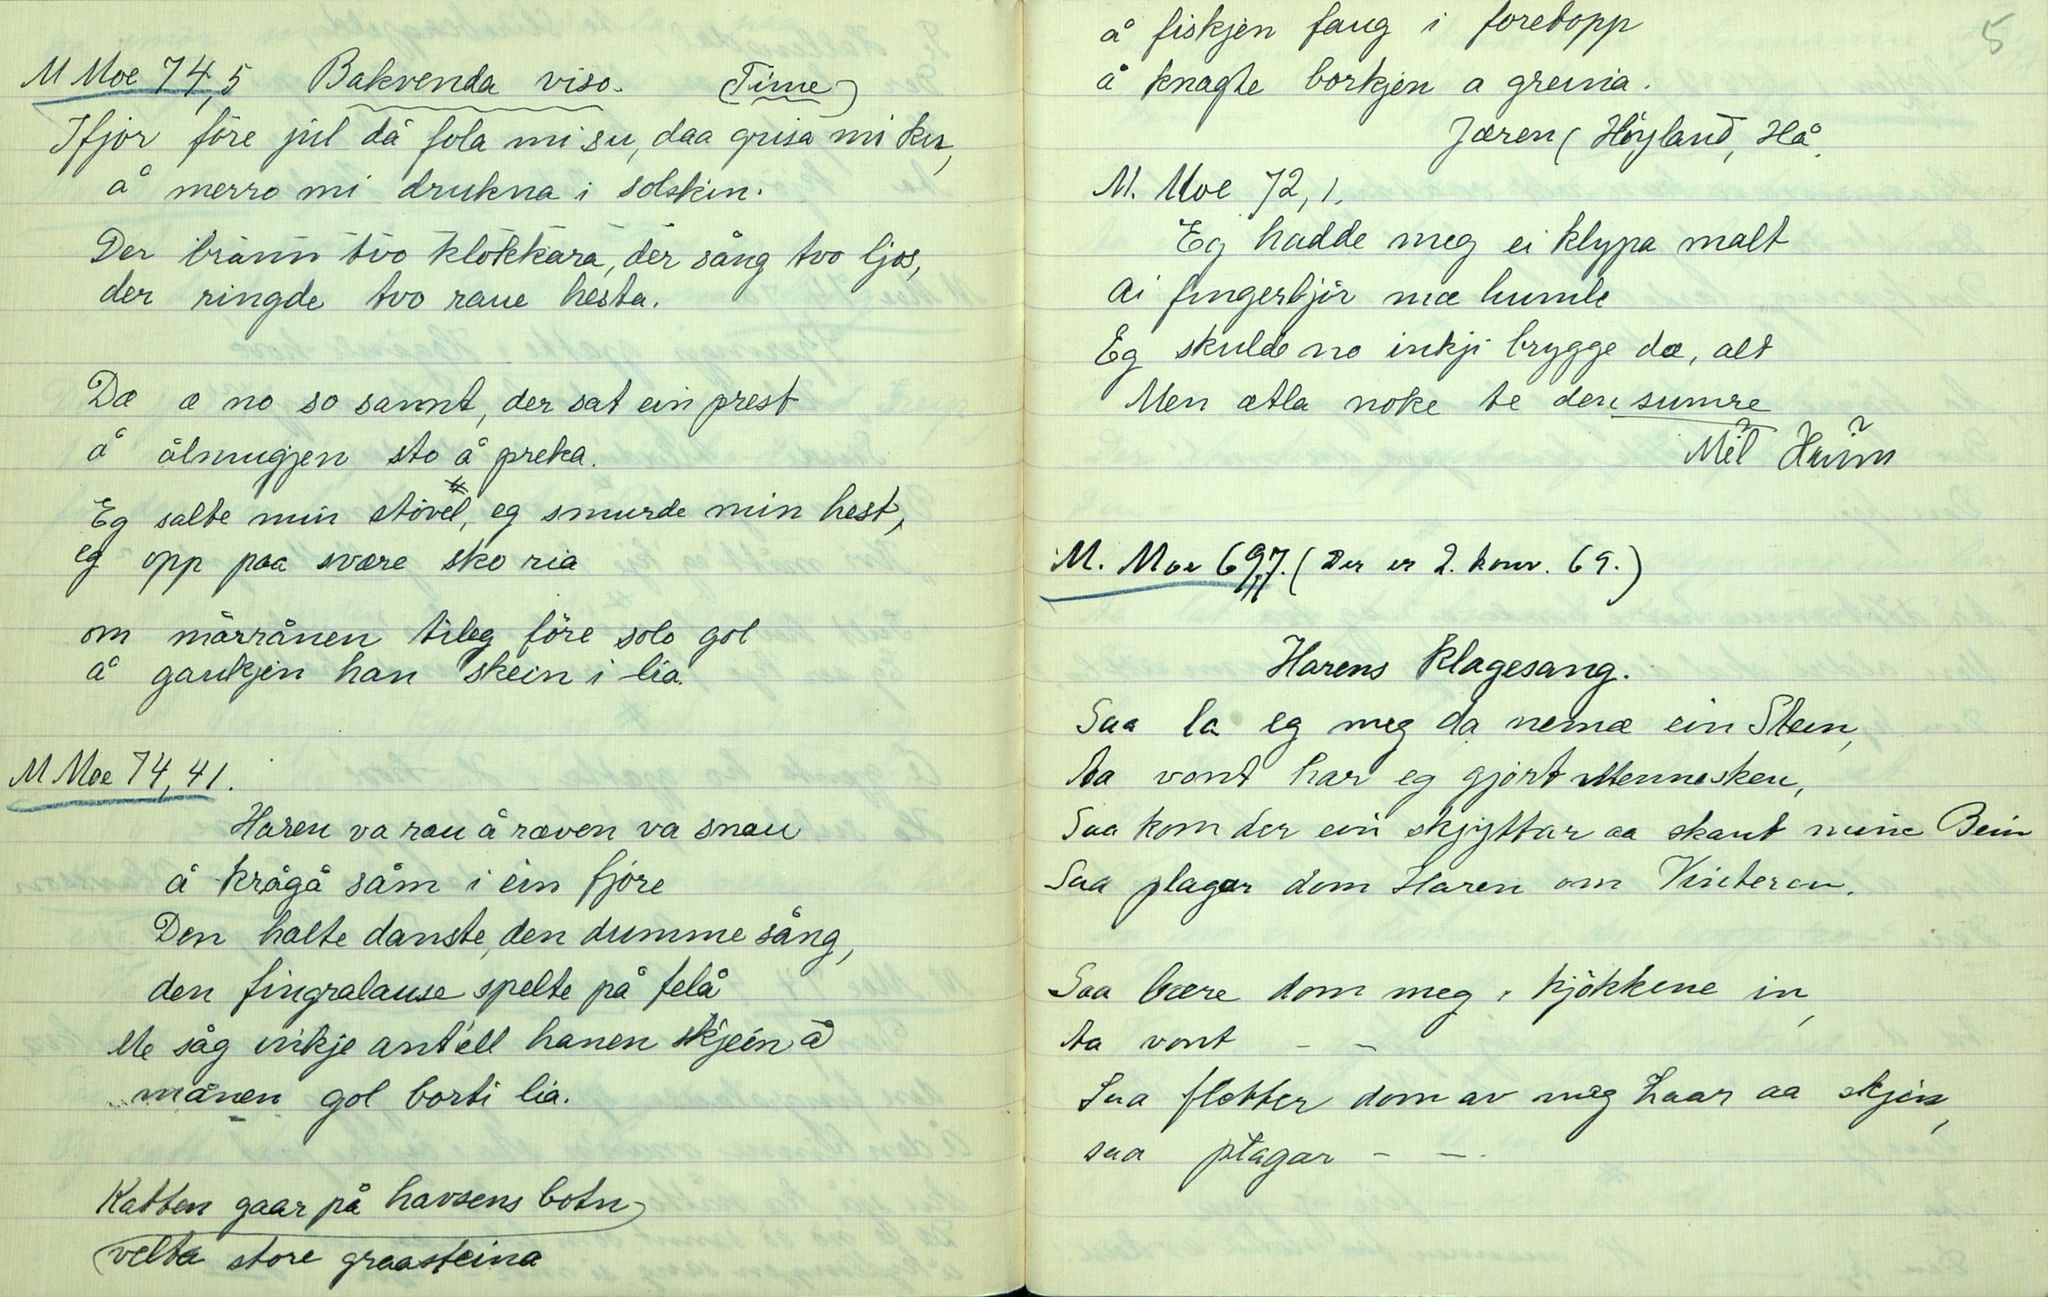 M Moe 74,5 Bakvenda viso. (Time)
Ifjor före jul då fola mi su, daa grisa mi ku,
å merro mi drukna i solskin.
Der brann tvo klokkara, der sång tvo ljos,
der ringde tvo raue hesta.
Dæ æ no so sannt, der sat ein prest
å ålmugjen sto å preka.
Eg salte min stövel, eg smurde min hest,
eg opp paa svære sko ria
om mårrånen tileg före solo gol
å gaukjen han skein i lia.
M Moe 74,41.
Haren va rau å ræven va snau
å krågå såm i ein fjöre
Den halte danste, den dumme sång,
den fingralause spelte på felå
Me såg inkje antell hanen skjein å
månen gol borti lia.
Katten gaar på havsens botn
velta store graasteina
5
å fiskjen faug i foretopp
å knagte borkjen a greina.
Jæren (Höyland, Hå
M. Moe 72,1.
Eg hadde meg ei klypa malt
ai fingerbjör mæ humle
Eg skulde no inkji brygge dæ, alt
Men ætla noke te den sumre
Mel
M. Moe 69,7. (Der er 2. konv. 69.)
Harens klagesang.
Saa la eg meg da nemæ ein Stein,
Aa vont har eg gjort Mennesken,
Saa kom der ein skjyttar aa skaut mine Bein
Saa plagar dom Haren om Vinteren.
Saa bære dom meg i kjökkene in,
Aa vont – –
Saa fletter dom av meg haar aa skjin,
saa plagar – –